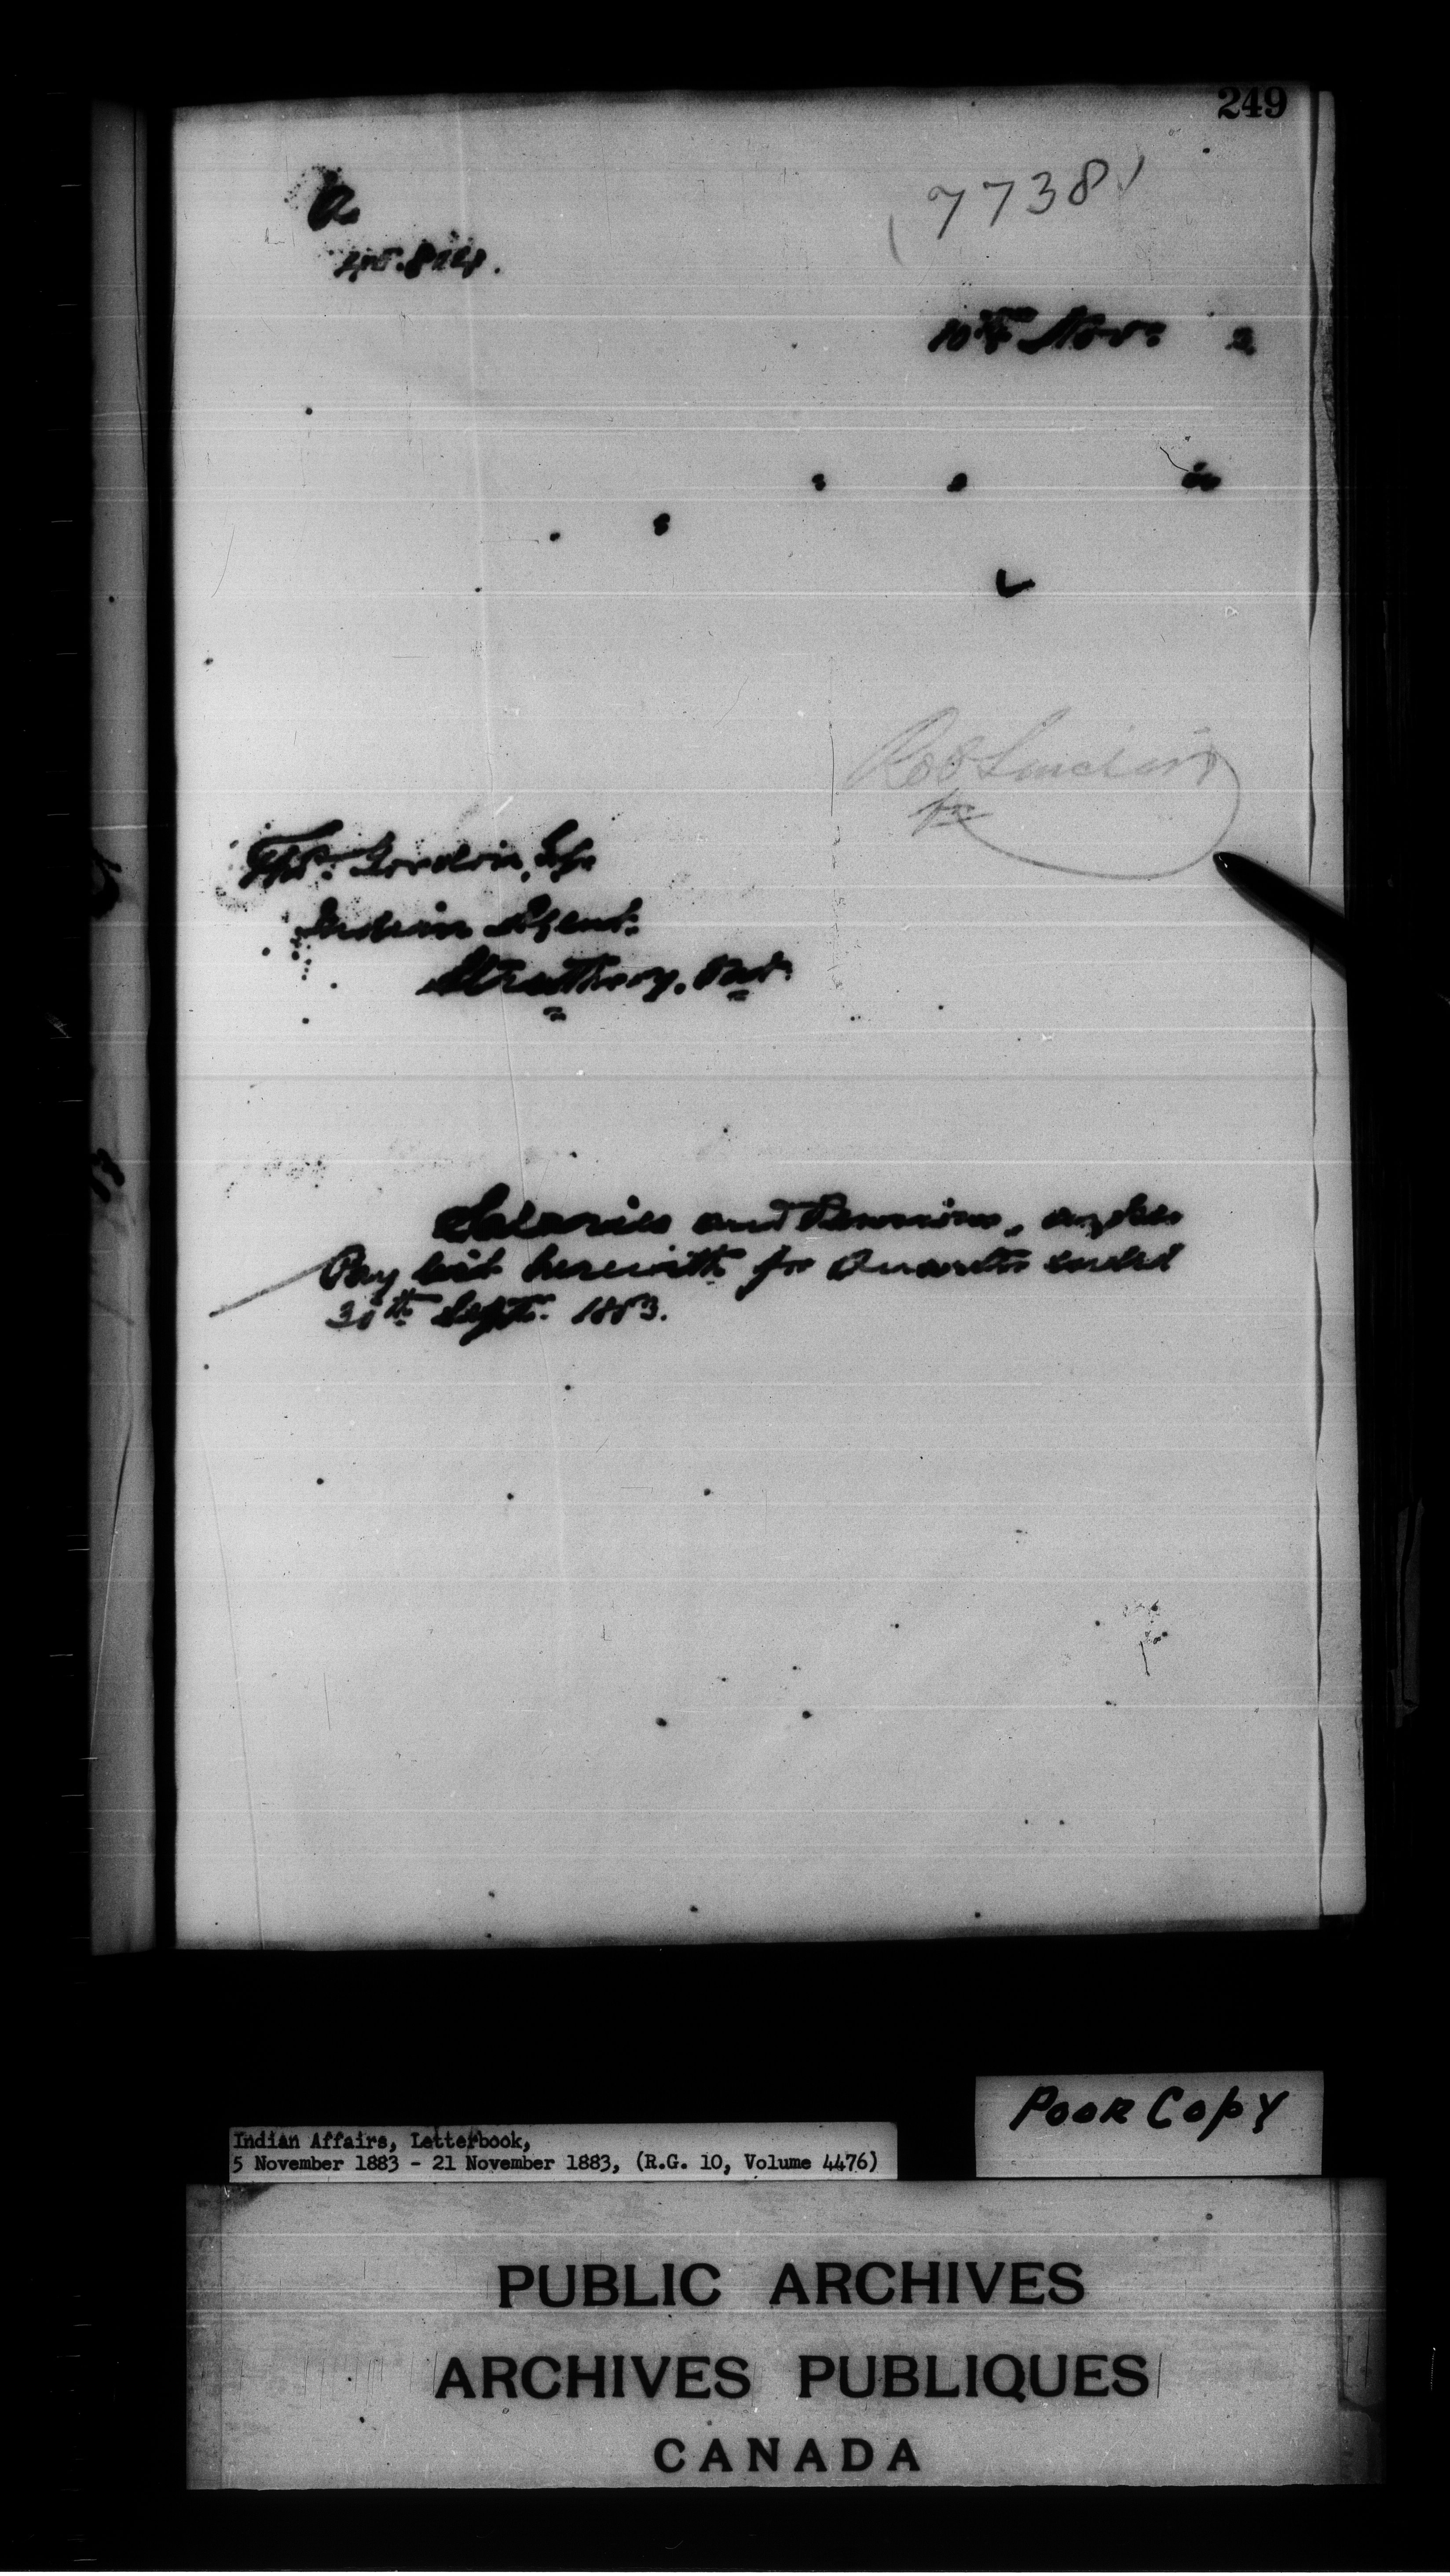 249
7738
10th Nov. 3
Rob Sinclair
for
Thos. Gordon, Esq.
Indian Agent.
Strathroy, Ont.
Salaries and Pensions, as per
Pay list herewith for Quarter ended
30th Sept. 1883.
Poor Copy
Indian Affairs, Letterbook,
5 November 1883 - 21 November 1883, (R.G. 10, Volume 4476)
PUBLIC ARCHIVES
ARCHIVES PUBLIQUES
CANADA